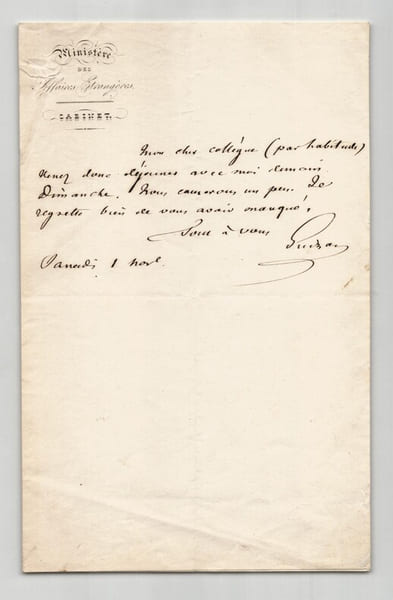 Ministère
DES
Affaires Etrangères.
CABINET.
Mon cher collègue (par habitude)
Venez donc déjeuner avec moi demain
Dimanche. Nous causerons un peu. Je
regrette bien de vous avoir manqué.
Tout à vous
Guizot
Samedi 1 nov.